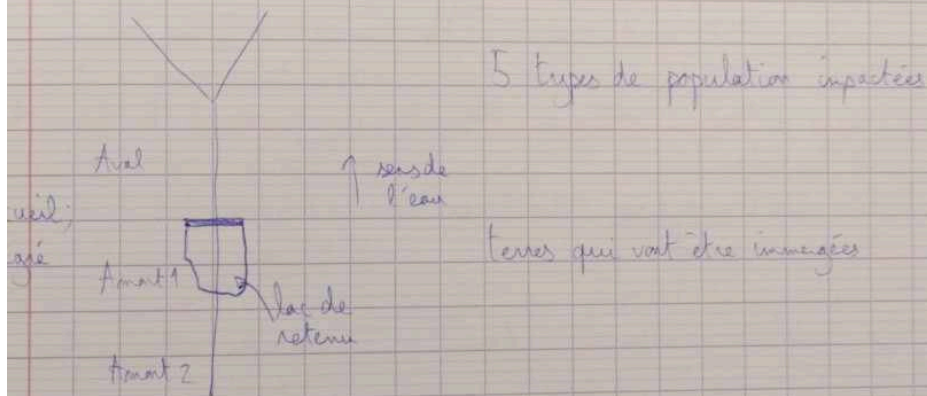 5 types de population impactées
Aval
sens de
l'eau
ueil;
terres qui vont être immergées
Amont 1
lac de
retenu
Amont 2